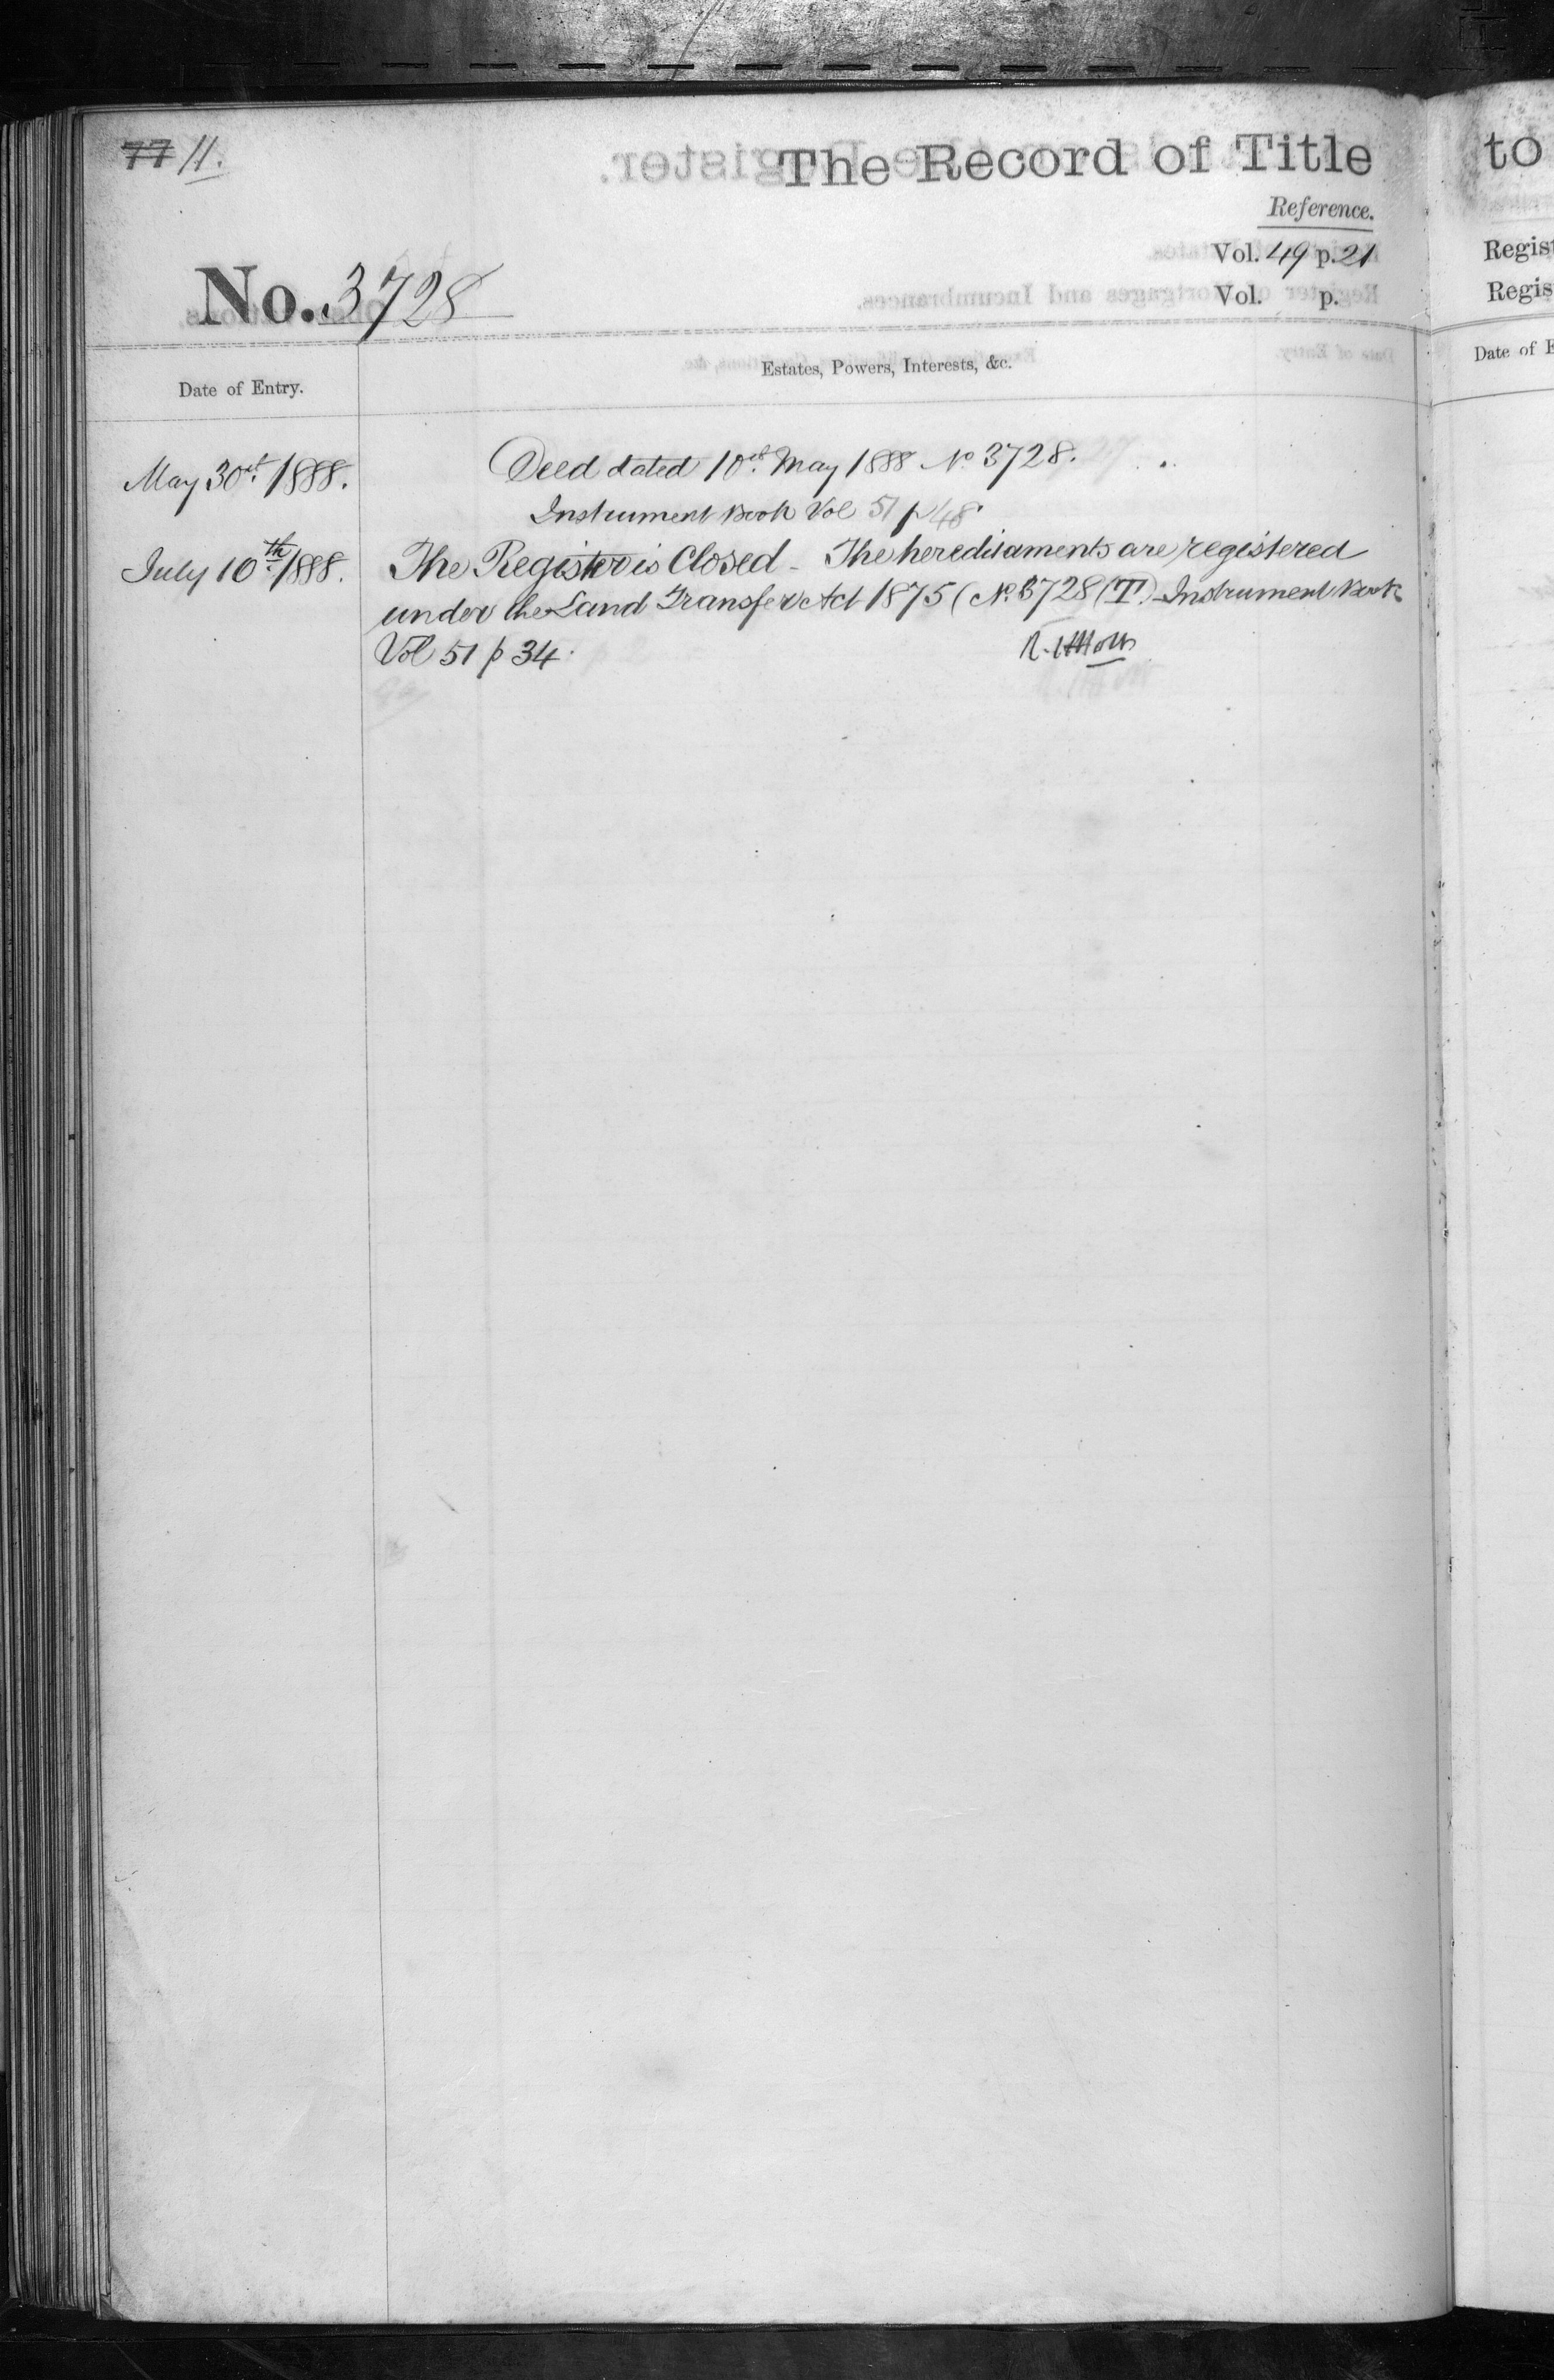 77 11.
The Record of Title
to
Reference.
Vol. 49 p. 21
Vol. p.
No. 3728
Date of Entry.
Estates, Powers, Interests, &c.
Date of
May 30th 1888.
Deed dated 10th May 1888 No 3728.
Instrument Book Vol 51 p 48
July 10th 1888.
The Register is Closed - The hereditaments are registered
under the Land Transfer Act 1875 (No. 3728 (T). Instrument Book
Vol 51 p 34.